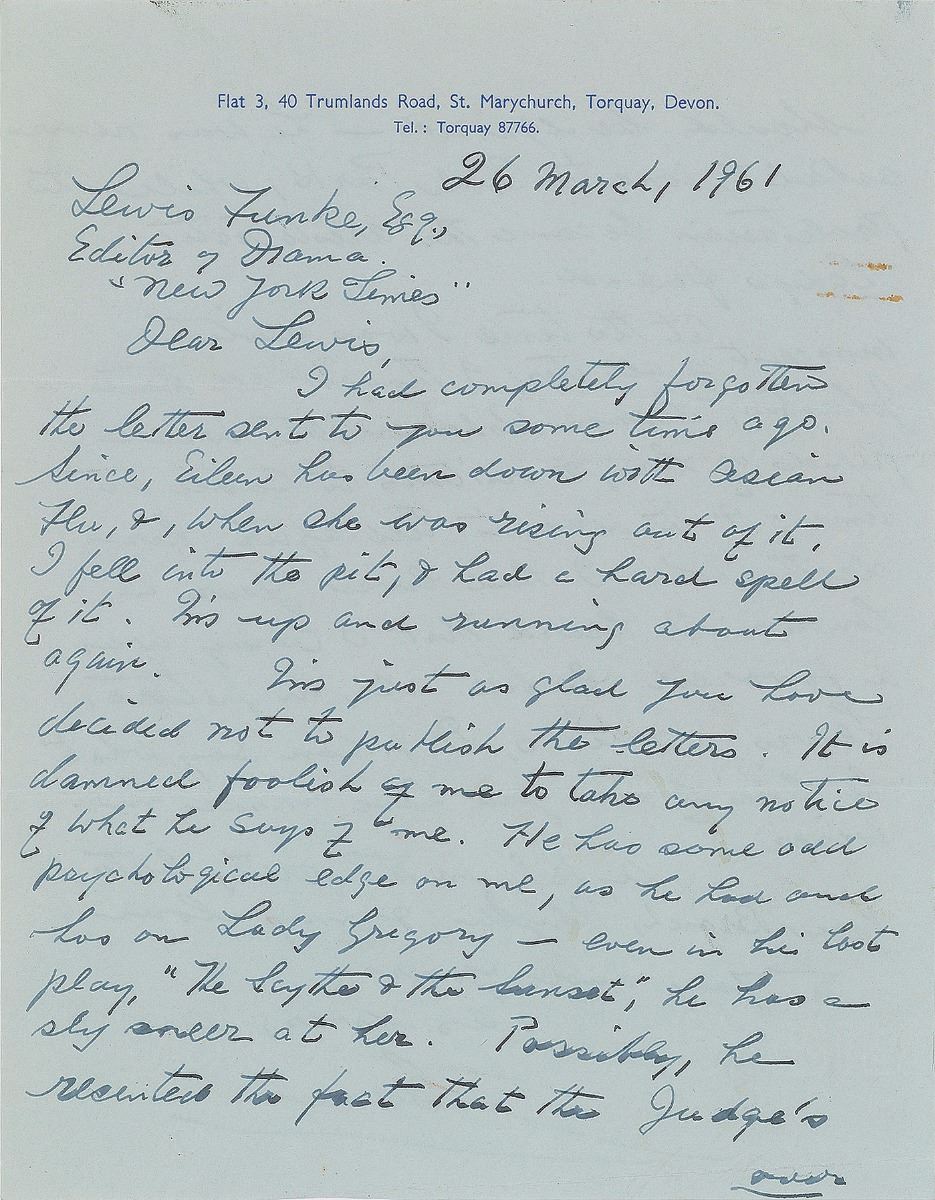 Flat 3, 40 Trumlands Road, St. Marychurch, Torquay, Devon.
Tel.: Torquay 87766.
26 March, 1961
Lewis Funke, Esq.,
Editor of Drama.
"New York Times"
Dear Lewis,
I had completely forgotten
the letter sent to you some time ago.
Since, Eileen has been down with Asian
Flu, &, when she was rising out of it,
I fell into the pit, & had a hard spell
of it. I'm up and running about
again. I'm just as glad you have
decided not to publish the letters. It is
damned foolish of me to take any notice
of what he says of me. He has some odd
psychological edge on me, as he had and
has on Lady Gregory — even in his last
play, "The Scythe & the Sunset", he has a
sly sneer at her. Possibly, he
resented the fact that the Judge's
over